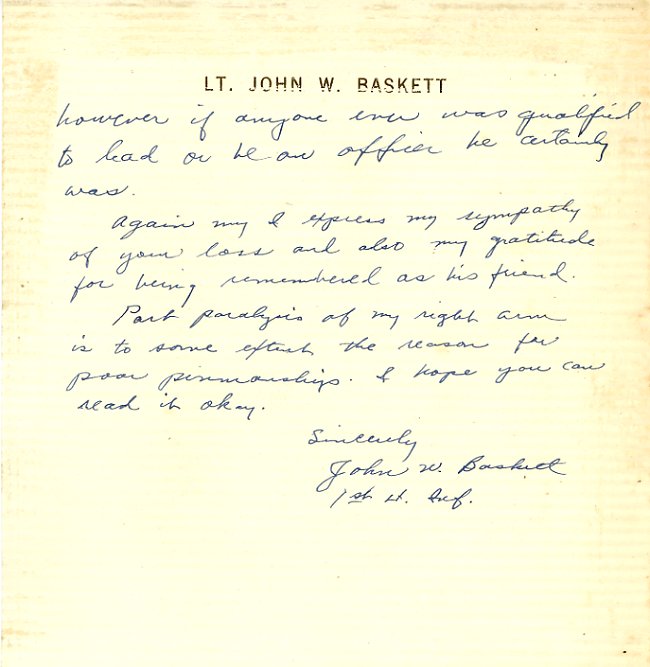 LT. JOHN W. BASKETT
however if anyone ever was qualified
to lead or be an officer he certainly
was.
Again my I express my sympathy
of your loss and also my gratitude
for being remembered as his friend.
Part paralysis of my right arm
is to some extent the reason for
poor penmanship. I hope you can
read it okay.
Sincerely
John W. Baskett
1st Lt. Inf.